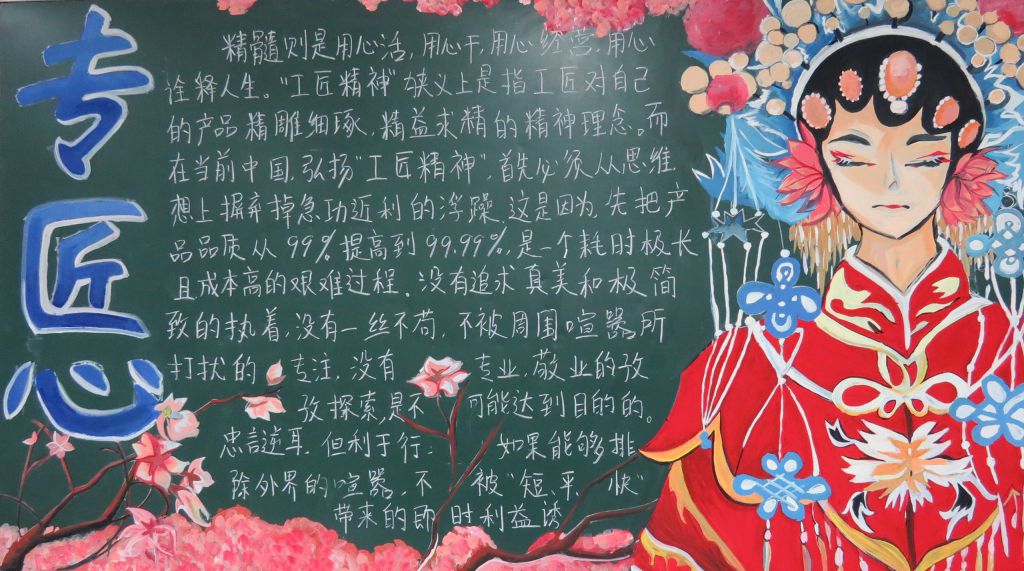 专匠心
精髓则是用心活,用心干,用心经营,用心
诠释人生。"工匠精神"狭义上是指工匠对自己
的产品精雕细琢,精益求精的精神理念。而
在当前中国,弘扬"工匠精神",首先必须从思维
想上摒弃掉急功近利的浮躁。这是因为,先把产
品品质从99%提高到99.99%,是一个耗时极长
且成本高的艰难过程。没有追求真美和极简
致的执着,没有一丝不苟,不被周围喧嚣所
打扰的专注,没有专业,敬业的孜
孜探索,是不可能达到目的的。
忠言逆耳,但利于行:如果能够排
除外界的喧嚣,不被"短、平、快"
带来的即时利益诱